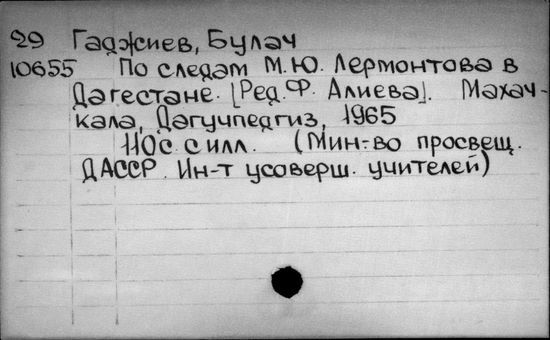 29 Гаджиев, Булач
10655 По следам М.Ю. Лермонтова в
Дагестане. [Ред. Ф. Алиева]. Махач-
кала, Дагучпедгиз, 1965
110с. с илл. (Мин-во просвещ.
ДАССР. Ин-т усоверш. учителей)